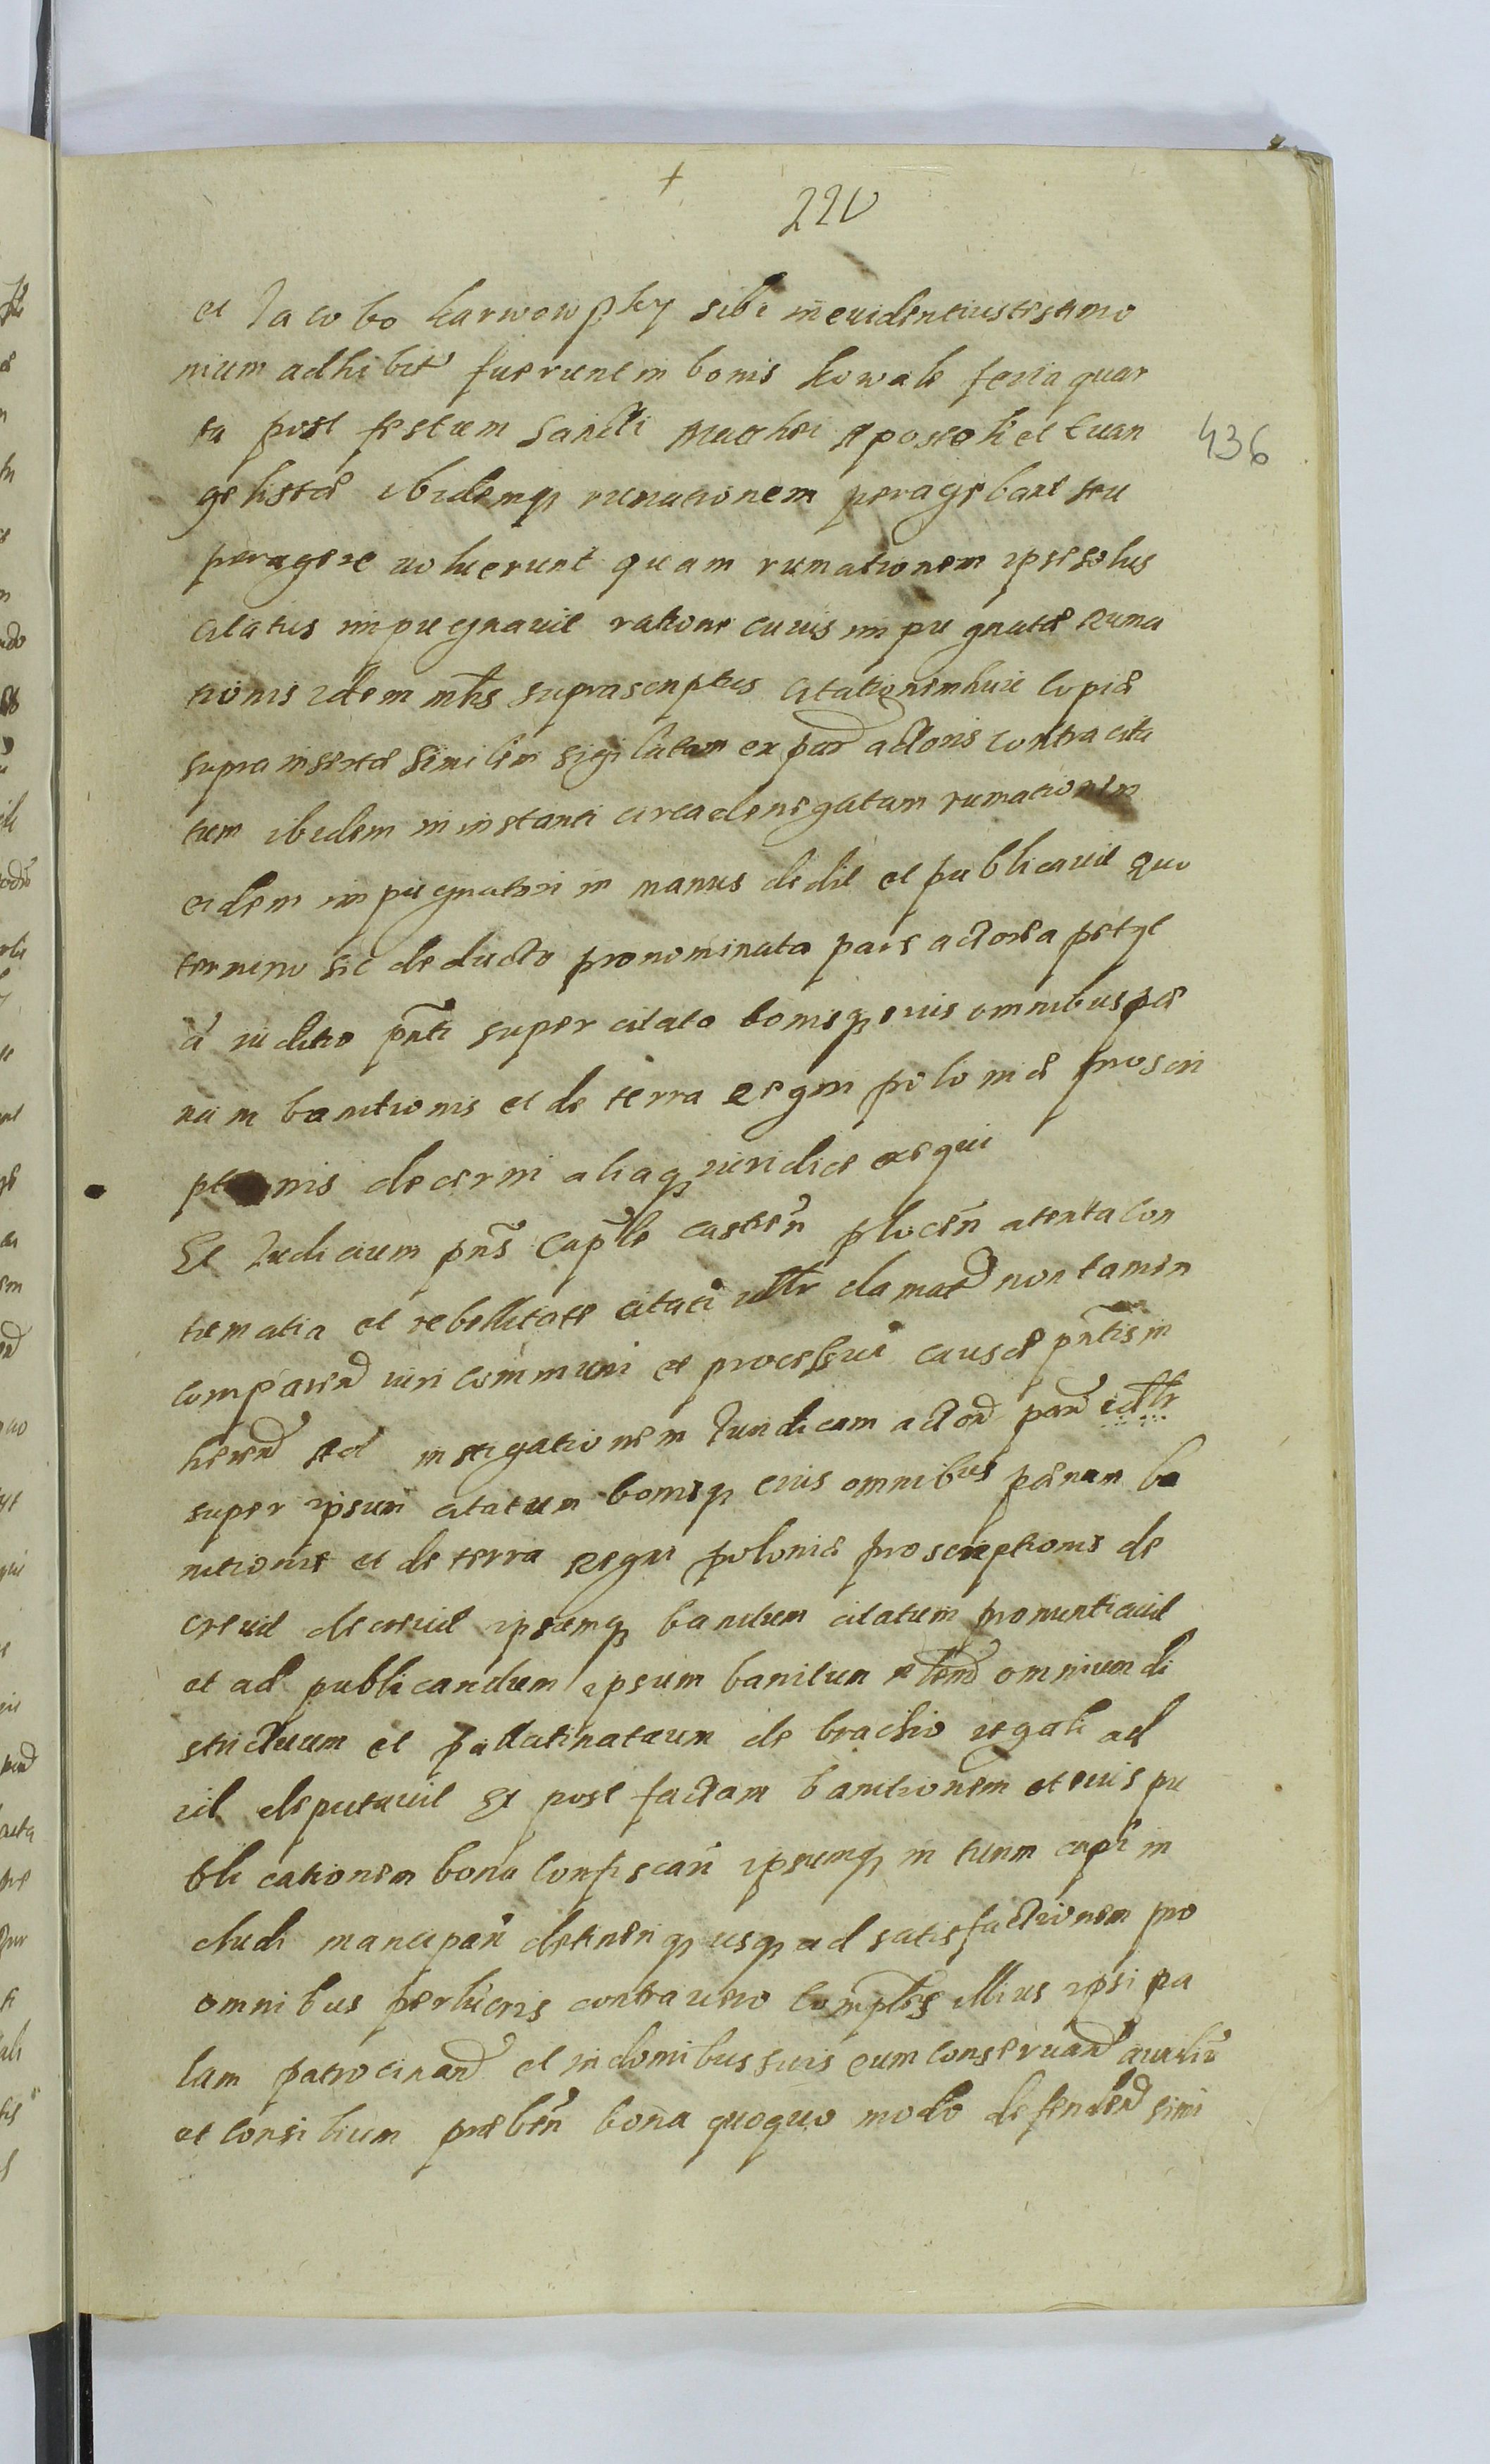 +
220
et Jacobo Karwowsky sibi in euidentius testimo
nium adhibit fuerunt in bonis Kowale feria quar
ta post festum Sancti Mathei Apostoli et Euan
gelistæ ibidemq rumationem peragebant seu
peragere uoluerunt quam rumationem ipse solus
citatus impugnauit ratione cuius impugnatæ Ruma
tionis idem mtis suprascriptus citationem huic copiæ
supra insertæ similem sigillatam ex par actoris contra cita
tum ibidem in instanti circa denegatam rumationem
eidem impugnatori in manus dedit et publicauit quo
termino sic deducto pronominata pars actorea petyt
á iuditio pnti super citato bonisq eius omnibus pæ
nam banitionis et de terra Regni poloniæ proscri
ptionis decerni aliaq iuridice exequi
Et Judicium pns Caple castren plocen atenta con
tumatia et rebellitate citati ulr clamat non tamen
comparen iuri communi et processui causæ pntis in
heren ad instigationem Juridicam actor par
super ipsum citatum bonisq eius omnibus pænam ba
nitionis et de terra Regni poloniæ proscriptionis de
creuit decreuit ipsumq banitum citatum pronuntiauit
et ad publicandum ipsum banitum omnium di
strictuum et pallatinatuum de brachio regali ad
id deputauit Et post factam banitionem et eius pu
blicationem bona confiscari ipsumq in turrim capi in
cludi mancipari detineriq usq ad satisfactionem pro
omnibus perlucris contra uero complices illius ipsi pa
lam patrocinan et in domibus suis eum conseruan auxiliu
et consilium præben bona quoquo modo defenden simi
436